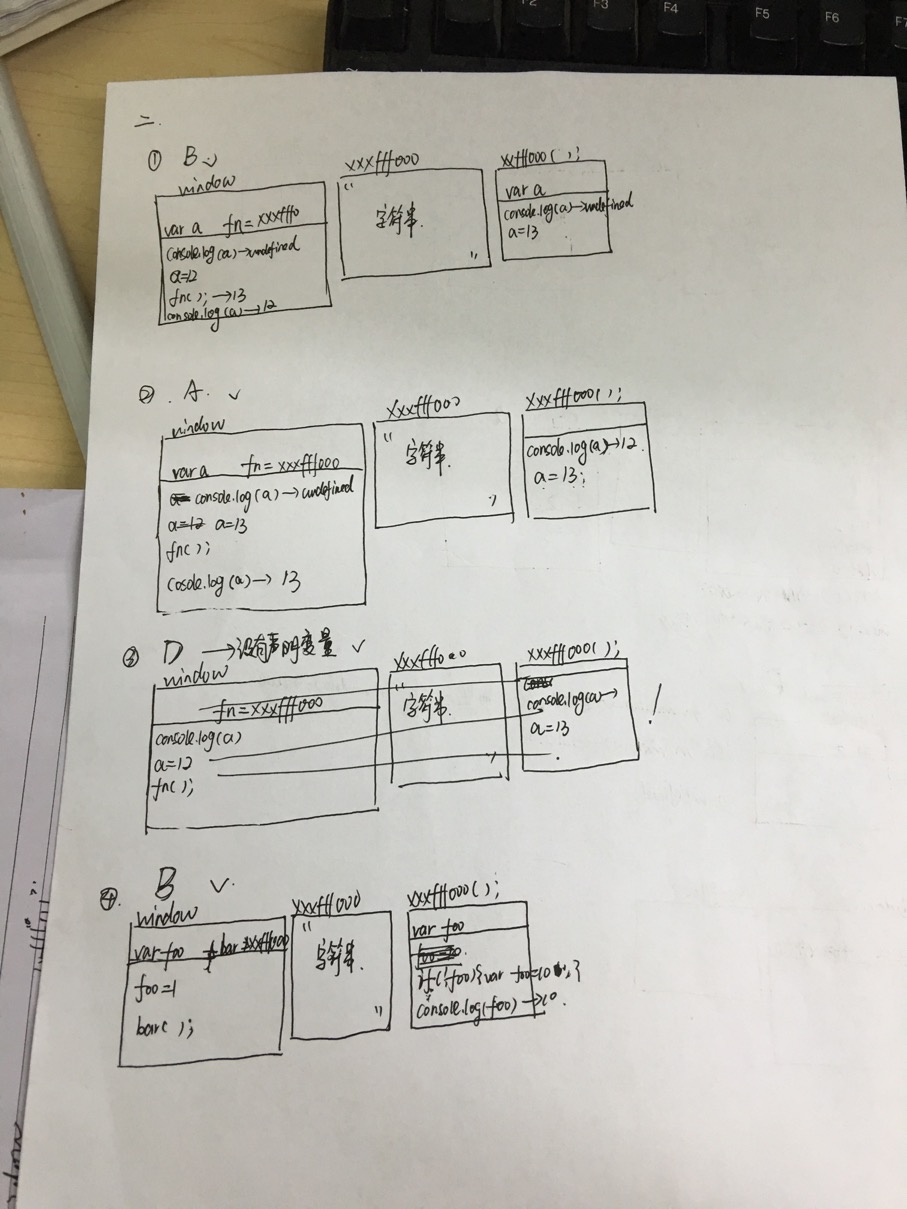 F2
F3
F4
F5
F6
F7
二.
① B
window
var a fn=xxxfff0
console.log(a)→undefined
a=12
fn(); →13
console.log(a)→12
xxxfff000
"
字符串.
"
xxfff000();
var a
console.log(a)→undefined
a=13
② . A.
window
var a fn=xxxfff000
console.log(a)→undefined
a=12 a=13
fn();
Cosole.log(a)→ 13
xxxfff000
"
字符串.
"
xxxfff000();
console.log(a)→12.
a=13;
③ D →没有声明变量
window
fn=xxxfff000
console.log(a)
a=12
fn();
xxxfff000
"
字符串.
"
xxxfff000();
console.log(a)→
a=13
!
④. B
window
var foo bar=xxxfff000
foo=1
bar();
xxxfff000
"
字符串.
"
xxxfff000();
var foo
if(!foo){var foo=10
console.log(foo)→10.